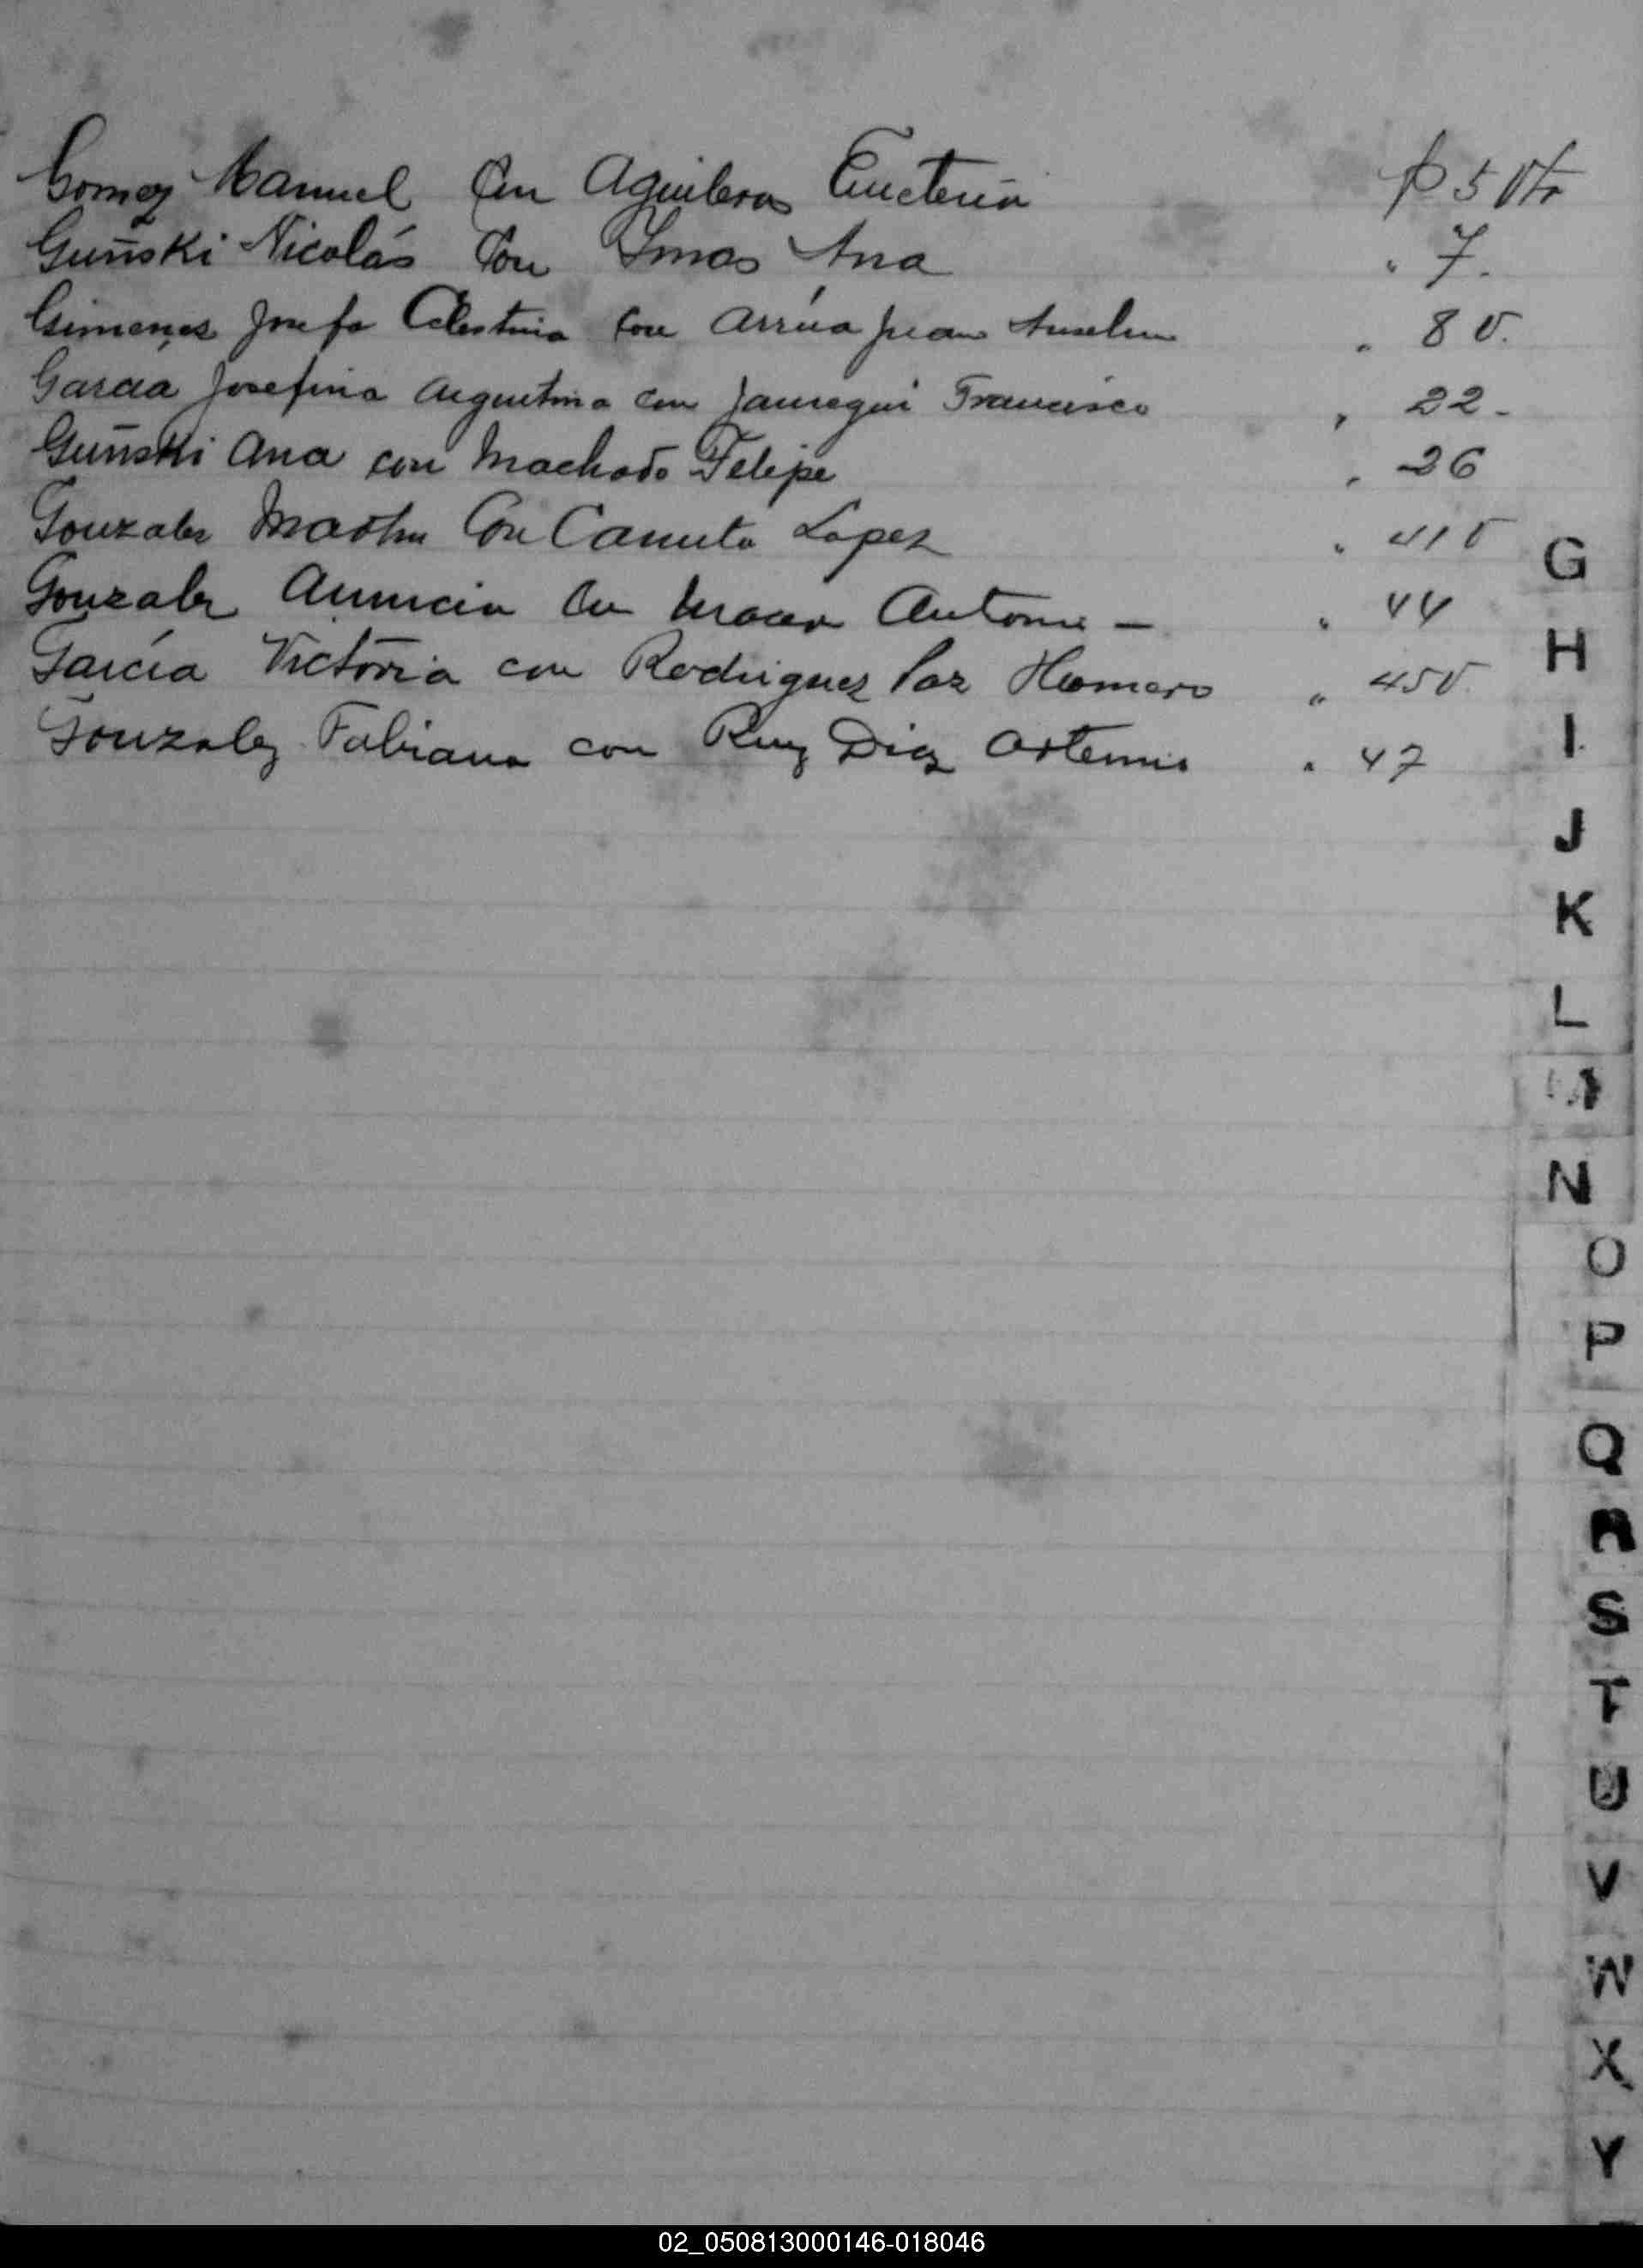 Gomez Manuel Con Aguilera Eucteria $ 5 Vto
Guñski Nicolás Con Ymas Ana " 7.
Gimenez Josefa Celestina Con Arrúa Juan Anselmo " 8 V.
Garcia Josefina Argentina con Jauregui Francisco " 22-
Guñski Ana con Machado Felipe " 26
Gonzalez Martin Con Canuta Lopez " 41 V
Gonzalez Con Antonio - " 44
García Victoria con Rodriguez Paz Homero " 45 V.
Gonzalez Fabiana con Ruiz Diaz Artemio " 47
G
H
I
J
K
L
M
N
O
P
Q
R
S
T
U
V
W
X
Y
02_050813000146-018046